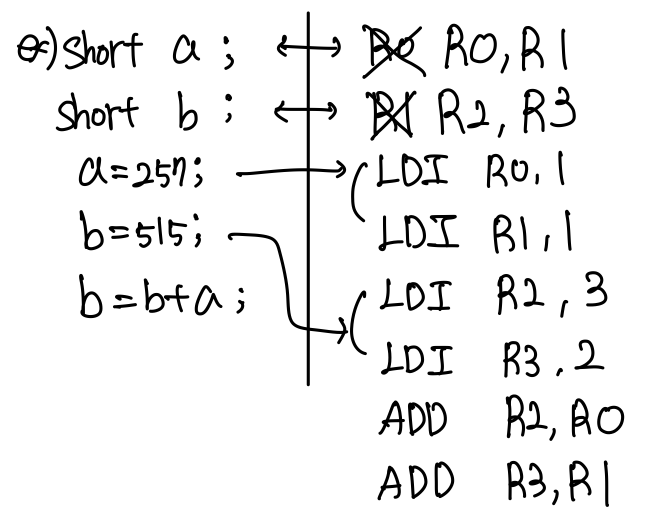 ex) short a ; ↔ R0 R0, R1
short b ; ↔ R1 R2, R3
a=257; → LDI R0, 1
LDI R1, 1
b=515; → LDI R2, 3
LDI R3, 2
b=b+a;
ADD R2, R0
ADD R3, R1